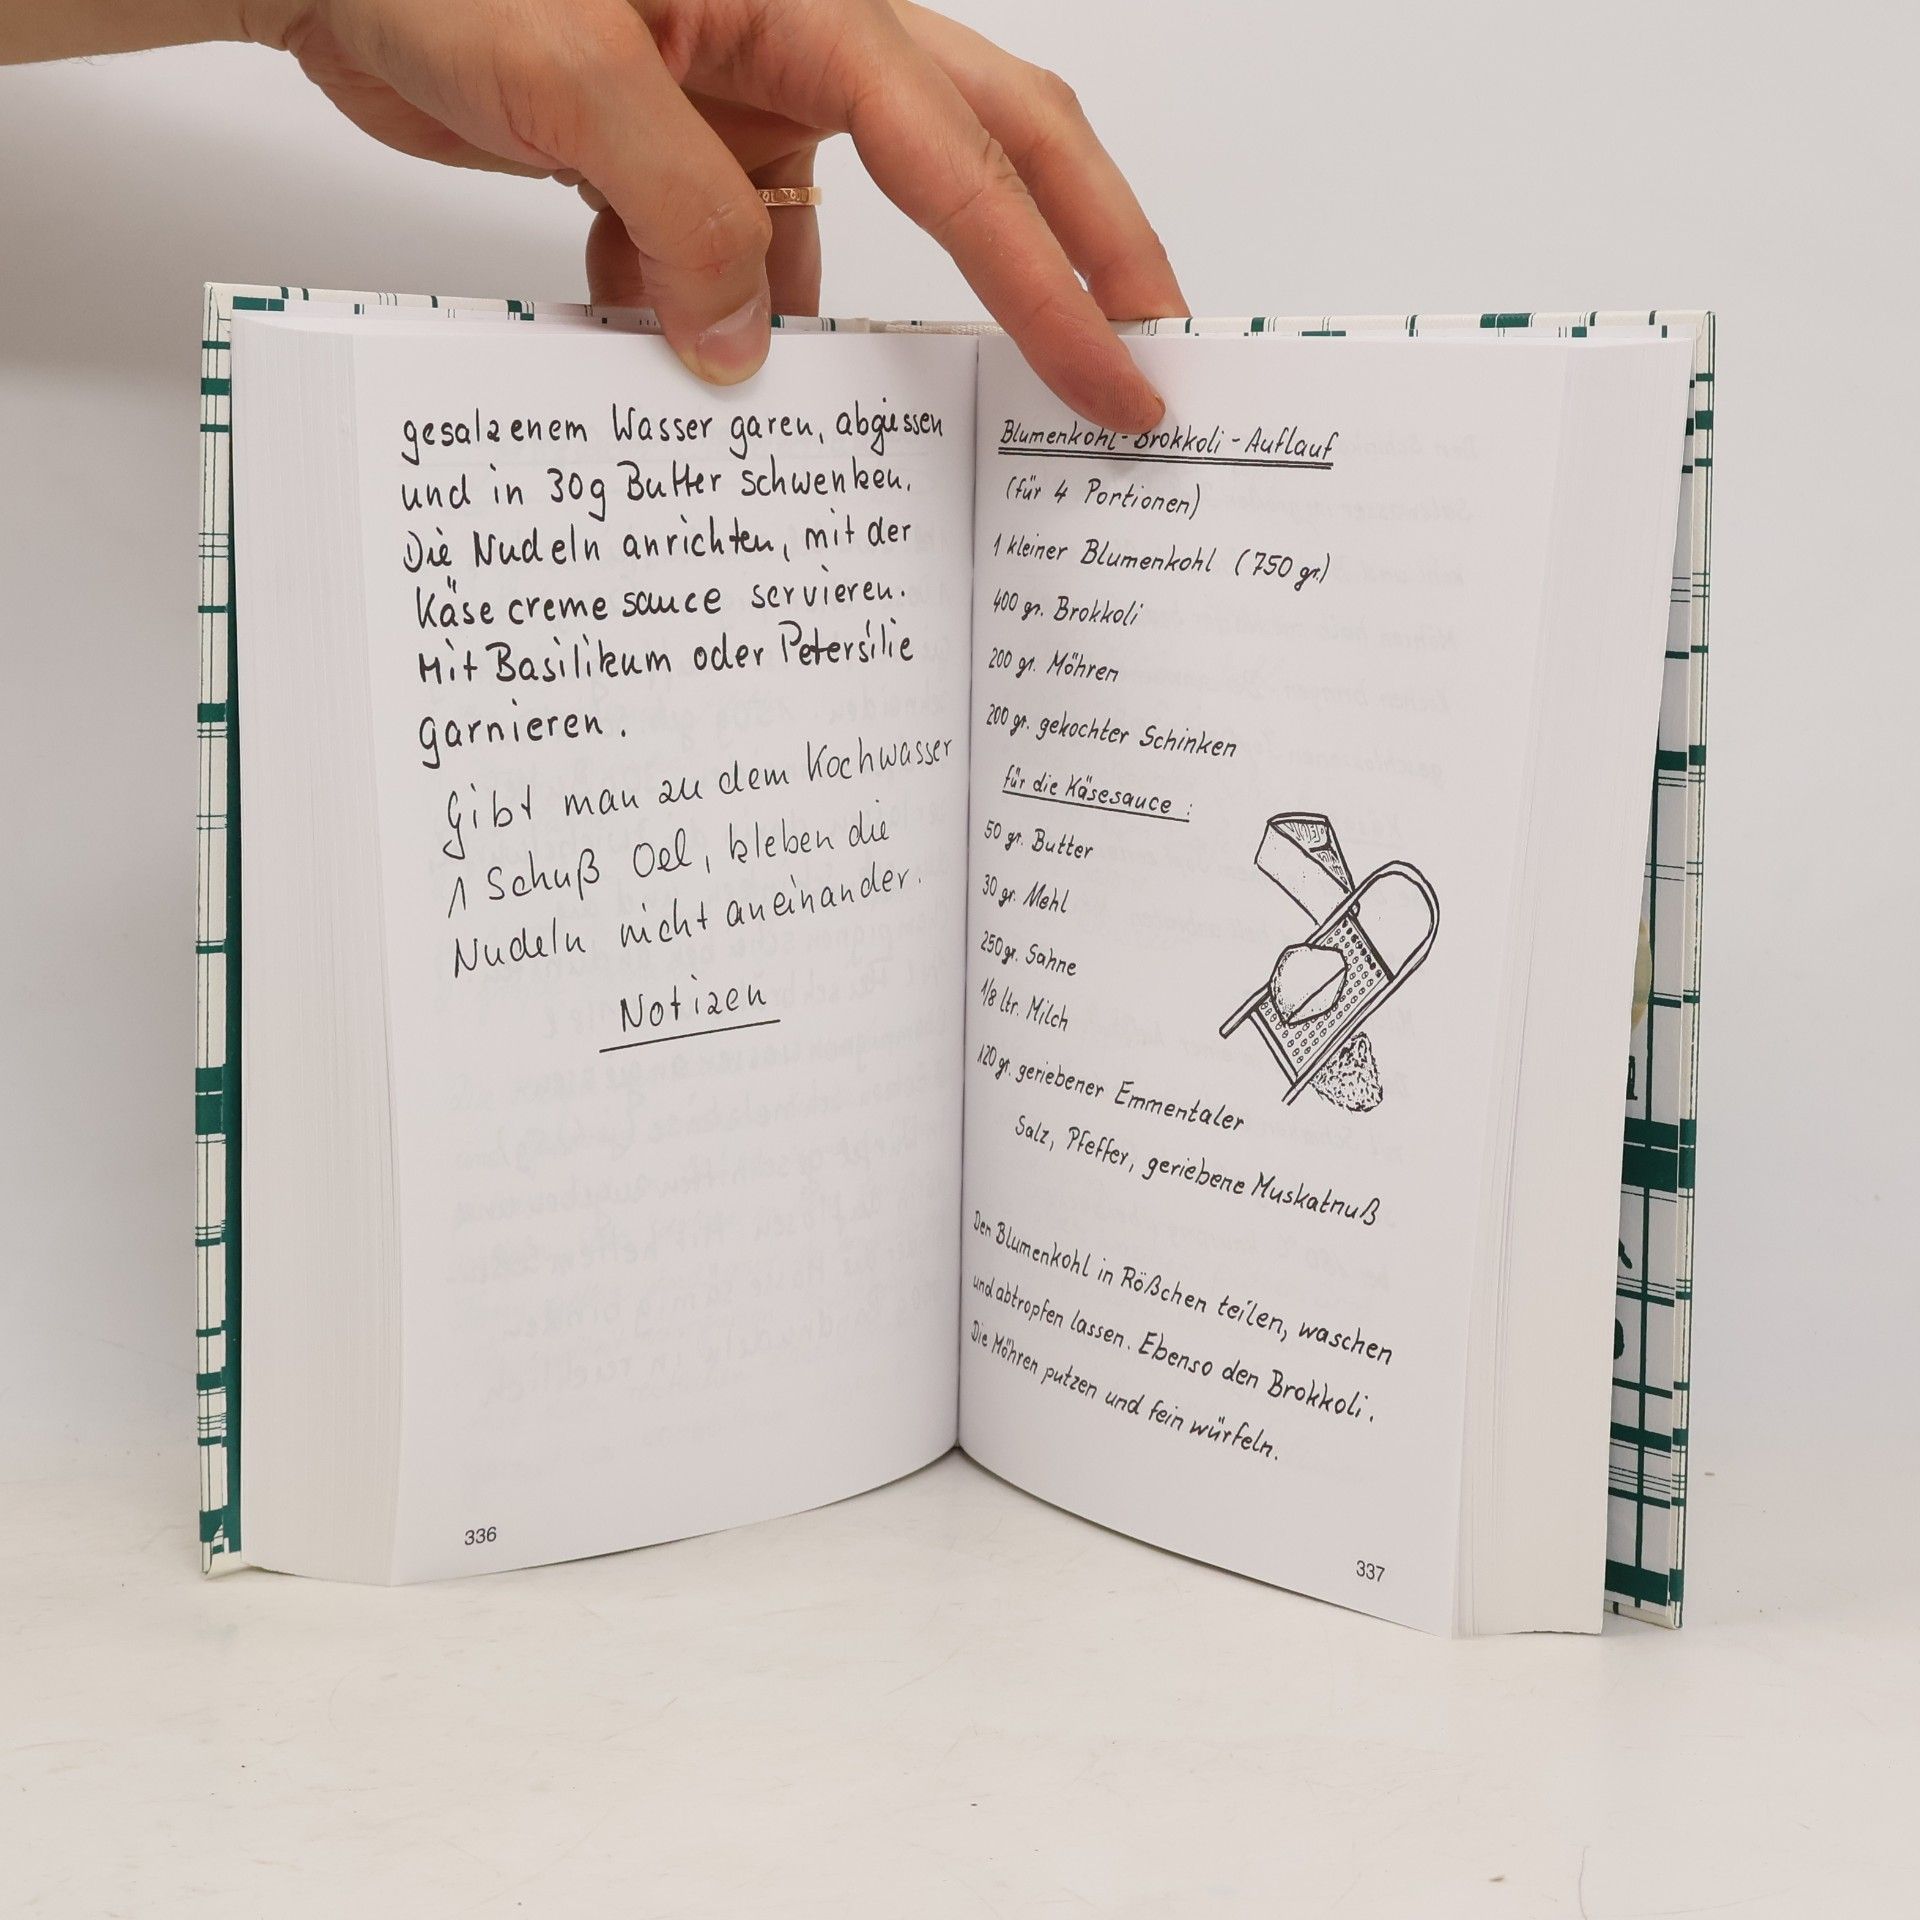 gesalzenem Wasser garen, abgiessen
und in 30g Butter schwenken.
Die Nudeln anrichten, mit der
Käsecremesauce servieren.
Mit Basilikum oder Petersilie
garnieren.
Gibt man zu dem Kochwasser
1 Schuß Oel, kleben die
Nudeln nicht aneinander.
Notizen
336
Blumenkohl-Brokkoli-Auflauf
(für 4 Portionen)
1 kleiner Blumenkohl (750 gr.)
400 gr. Brokkoli
200 gr. Möhren
200 gr. gekochter Schinken
für die Käsesauce:
50 gr. Butter
30 gr. Mehl
250 gr. Sahne
1/8 ltr. Milch
120 gr. geriebener Emmentaler
Salz, Pfeffer, geriebene Muskatnuß
Den Blumenkohl in Rößchen teilen, waschen
und abtropfen lassen. Ebenso den Brokkoli.
Die Möhren putzen und fein würfeln.
337